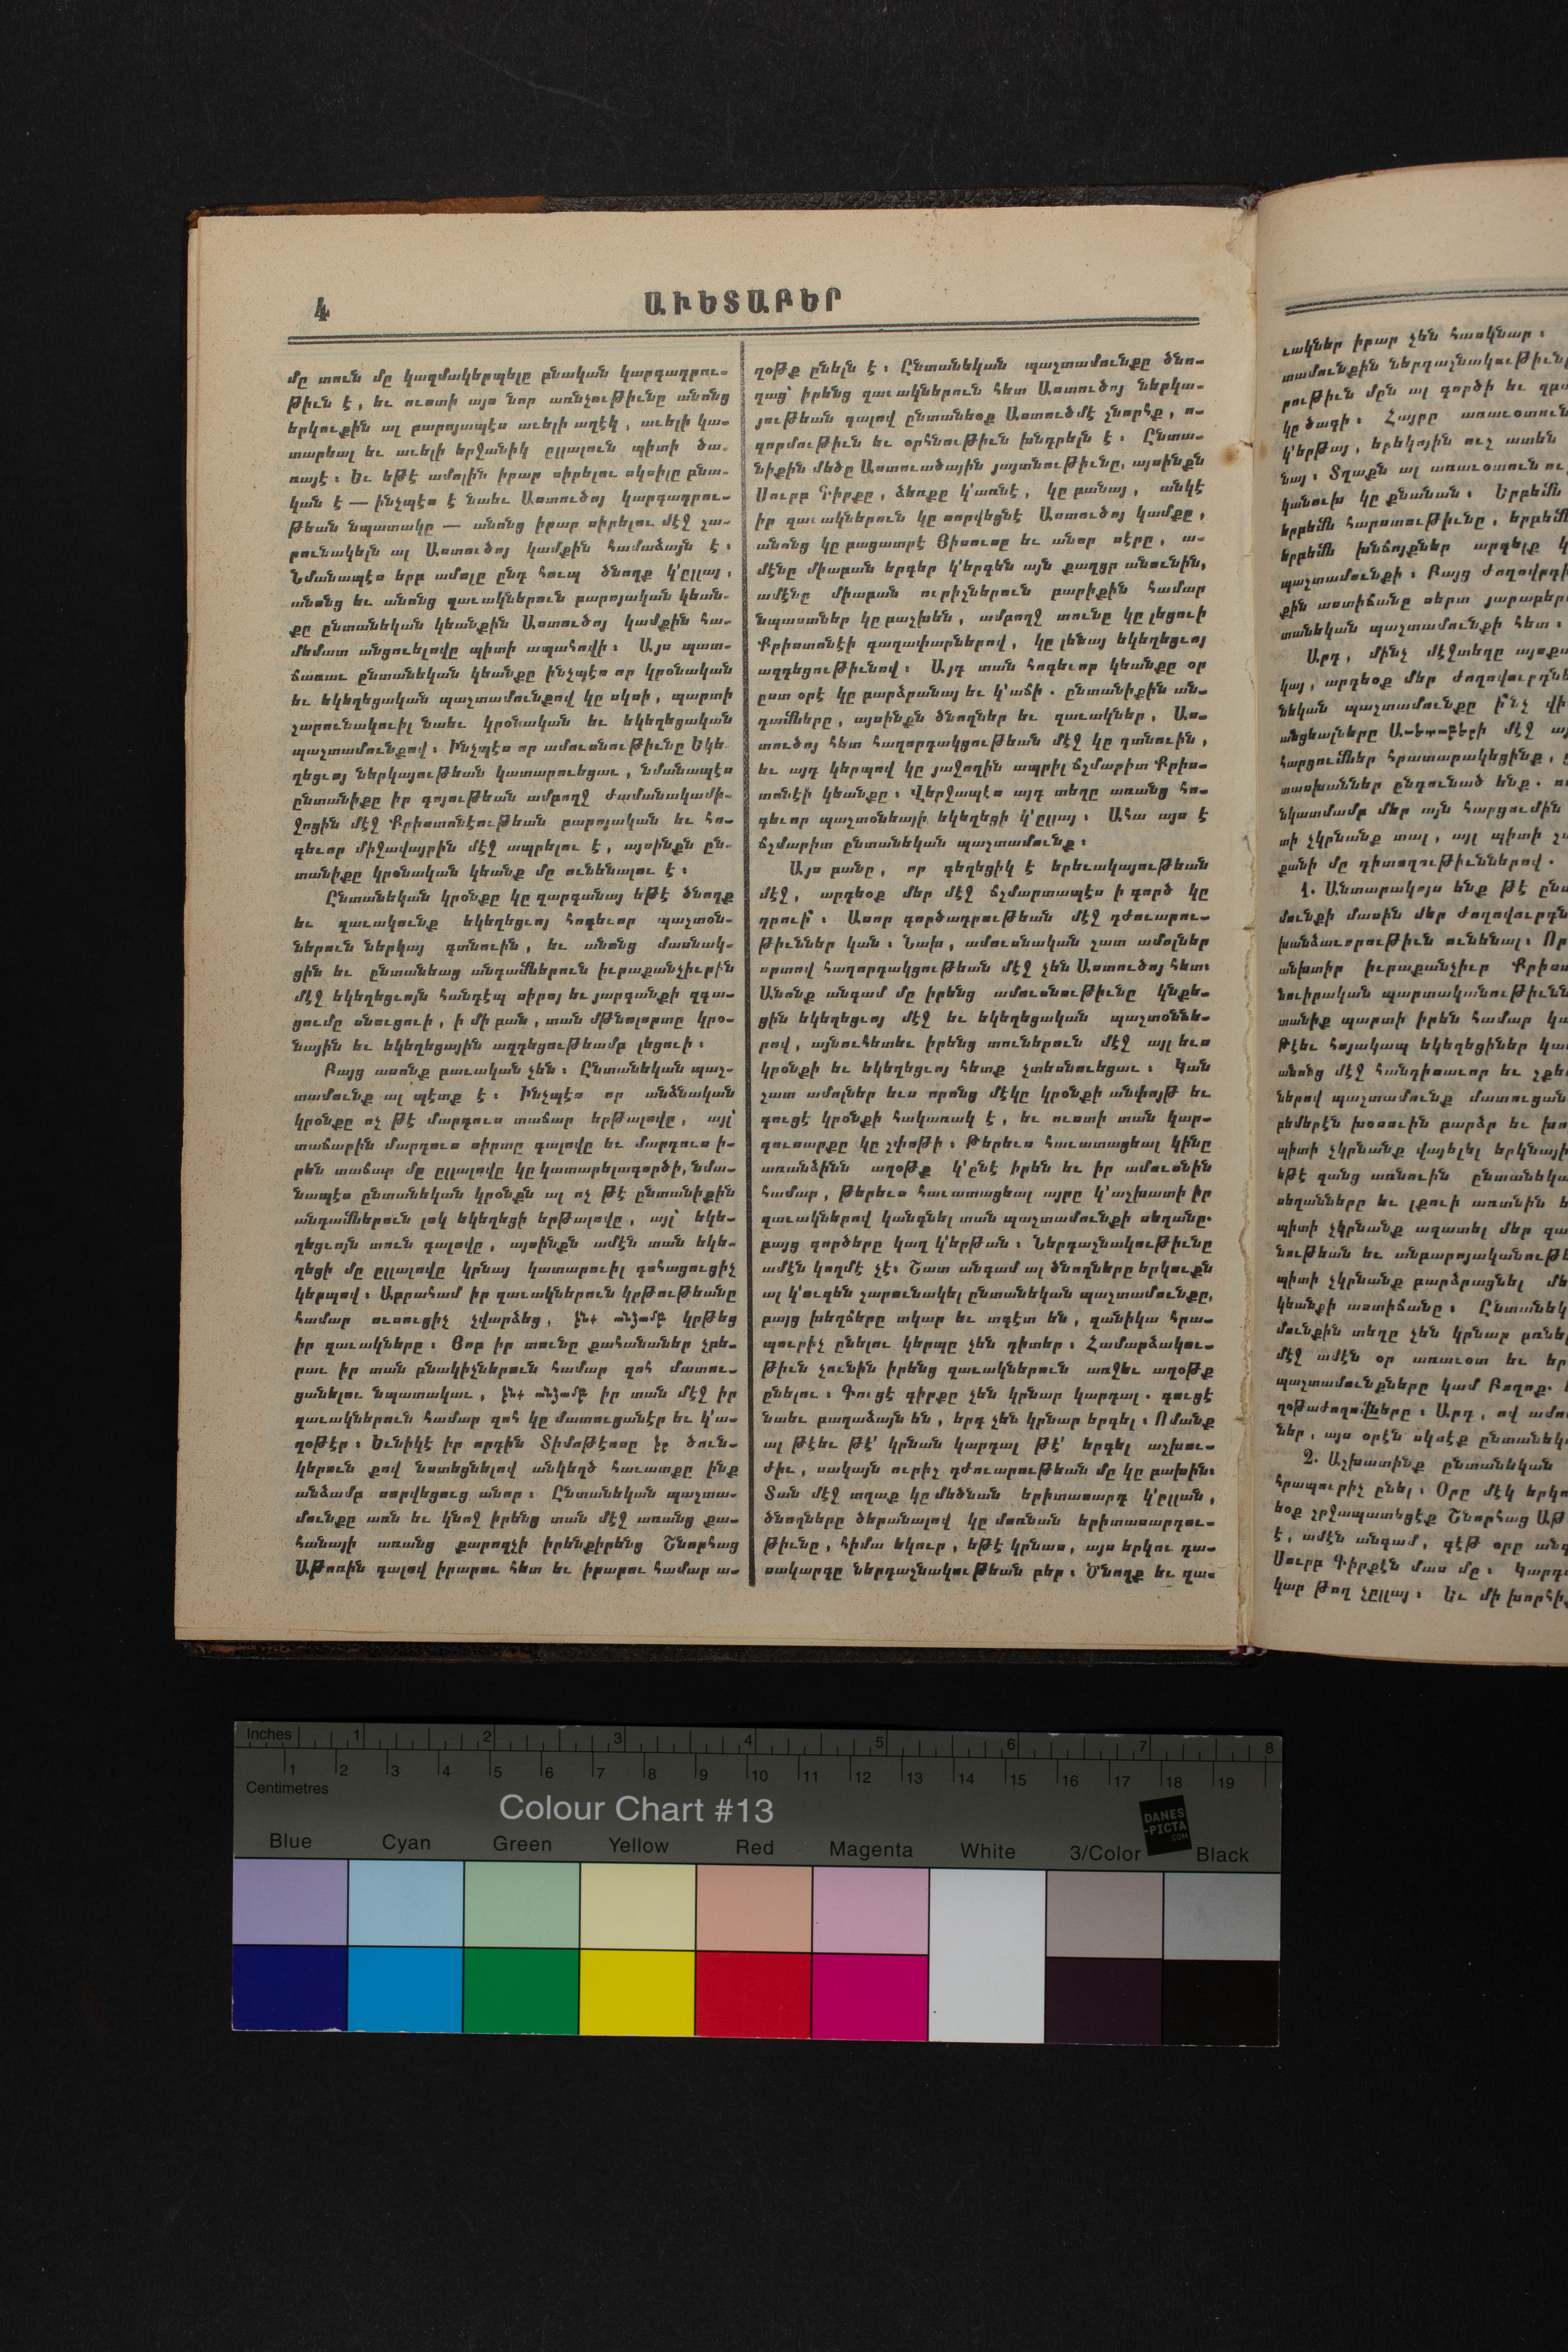 4
ԱՒԵՏԱԲԵՐ
մը տուն մը կազմակերպելը բնական կարգադրու-
թիւն է, եւ ուստի այս նոր առնչութիւնը անոնց
երկուքին ալ բարոյապէս աւելի աղէկ, աւելի կա-
տարեալ եւ աւելի երջանիկ ըլլալուն պիտի ծա-
ռայէ։ Եւ եթէ ամոլին իրար սիրելու սկսիլը բնա-
կան է — ինչպէս է նաեւ Աստուծոյ կարգադրու-
թեան նպատակը — անոնց իրար սիրելու մէջ շա-
րունակելն ալ Աստուծոյ կամքին համաձայն է։
Նմանապէս երբ ամոլը ընդ հուպ ծնողք կ'ըլլայ,
անոնց եւ անոնց զաւակներուն բարոյական կեան-
քը ընտանեկան կեանքին Աստուծոյ կամքին հա-
մեմատ անցուելովը պիտի ապահովի։ Այս պատ-
ճառաւ ընտանեկան կեանքը ինչպէս որ կրօնական
եւ եկեղեցական պաշտամունքով կը սկսի, պարտի
շարունակուիլ նաեւ կրօնական եւ եկեղեցական
պաշտամունքով։ Ինչպէս որ ամուսնութիւնը Եկե-
ղեցւոյ ներկայութեան կատարուեցաւ, նմանապէս
ընտանիքը իր գոյութեան ամբողջ ժամանակամի-
ջոցին մէջ Քրիստոնէութեան բարոյական եւ հո-
գեւոր միջավայրին մէջ ապրելու է, այսինքն ըն-
տանիքը կրօնական կեանք մը ունենալու է։
Ընտանեկան կրօնքը կը զարգանայ եթէ ծնողք
եւ զաւակունք եկեղեցւոյ հոգեւոր պաշտօն-
ներուն ներկայ գտնուին, եւ անոնց մասնակ-
ցին եւ ընտանեաց անդամներուն իւրաքանչիւրին
մէջ եկեղեցւոյն հանդէպ սիրոյ եւ յարգանքի զգա-
ցումը սնուցուի, ի մի բան, տան մթնոլորտը կրօ-
նային եւ եկեղեցային ազդեցութեամբ լեցուի։
Բայց ասոնք բաւական չեն։ Ընտանեկան պաշ-
տամունք ալ պէտք է։ Ինչպէս որ անձնական
կրօնքը ոչ թէ մարդուս տաճար երթալովը, այլ՝
տաճարին մարդուս սիրտը գալովը եւ մարդուս ի-
րեն տաճար մը ըլլալովը կը կատարելագործի, նմա-
նապէս ընտանեկան կրօնքն ալ ոչ թէ ընտանիքին
անդամներուն լոկ եկեղեցի երթալովը, այլ՝ եկե-
ղեցւոյն տուն գալովը, այսինքն ամէն տան եկե-
ղեցի մը ըլլալովը կրնայ կատարուիլ գոհացուցիչ
կերպով։ Աբրահամ իր զաւակներուն կրթութեանը
համար ուսուցիչ չվարձեց, ինք անձամբ կրթեց
իր զաւակները։ Յոբ իր տունը քահանաներ չբե-
րաւ իր տան բնակիչներուն համար զոհ մատու-
ցանելու նպատակաւ, ինք անձամբ իր տան մէջ իր
զաւակներուն համար զոհ կը մատուցանէր եւ կ'ա-
ղօթէր։ Եւնիկէ իր որդին Տիմոթէոսը իր ծուն-
կերուն քով նստեցնելով անկեղծ հաւատքը ինք
անձամբ սորվեցուց անոր։ Ընտանեկան պաշտա-
մունքը առն եւ կնոջ իրենց տան մէջ առանց քա-
հանայի առանց քարոզչի իրենքիրենց Շնորհաց
Աթոռին գալով իրարու հետ եւ իրարու համար ա-
ղօթք ընելն է։ Ընտանեկան պաշտամունքը ծնո-
ղաց՝ իրենց զաւակներուն հետ Աստուծոյ ներկա-
յութեան գալով ընտանեօք Աստուծմէ շնորհք, ո-
ղորմութիւն եւ օրհնութիւն խնդրելն է։ Ընտա-
նիքին մեծը Աստուածային յայտնութիւնը, այսինքն
Սուրբ Գիրքը, ձեռքը կ'առնէ, կը բանայ, անկէ
իր զաւակներուն կը սորվեցնէ Աստուծոյ կամքը,
անոնց կը բացատրէ Յիսուսը եւ անոր սէրը, ա-
մէնը միաբան երգեր կ'երգեն այն քաղցր անունին,
ամէնը միաբան ուրիշներուն բարիքին համար
նպաստներ կը բաշխեն, ամբողջ տունը կը լեցուի
Քրիստոնէի գաղափարներով, կը լենայ եկեղեցւոյ
ազդեցութիւնով։ Այդ տան հոգեւոր կեանքը օր
ըստ օրէ կը բարձրանայ եւ կ'աճի. ընտանիքին ան-
դամները, այսինքն ծնողներ եւ զաւակներ, Աս-
տուծոյ հետ հաղորդակցութեան մէջ կը գտնուին,
եւ այդ կերպով կը յաջողին ապրիլ ճշմարիտ Քրիս-
տոնէի կեանքը։ Վերջապէս այդ տեղը առանց հո-
գեւոր պաշտօնեայի եկեղեցի կ'ըլլայ։ Ահա այս է
ճշմարիտ ընտանեկան պաշտամունք։
Այս բանը, որ գեղեցիկ է երեւակայութեան
մէջ, արդեօք մեր մէջ ճշմարտապէս ի գործ կը
դրուի՞։ Ասոր գործադրութեան մէջ դժուարու-
թիւններ կան։ Նախ, ամուսնական շատ ամոլներ
սրտով հաղորդակցութեան մէջ չեն Աստուծոյ հետ։
Անոնք անգամ մը իրենց ամուսնութիւնը կնքե-
ցին եկեղեցւոյ մէջ եւ եկեղեցական պաշտօննե-
րով, այնուհետեւ իրենց տուներուն մէջ այլ եւս
կրօնքի եւ եկեղեցւոյ հետք չտեսնուեցաւ։ Կան
շատ ամոլներ եւս որոնց մէկը կրօնքի անփոյթ եւ
գուցէ կրօնքի հակառակ է, եւ ուստի տան կար-
գուսարքը կը շփոթի։ Թերեւս հաւատացեալ կինը
առանձինն աղօթք կ'ընէ իրեն եւ իր ամուսնին
համար, թերեւս հաւատացեալ այրը կ'աշխատի իր
զաւակներով կանգնել տան պաշտամունքի սեղանը.
բայց գործերը կաղ կ'երթան։ Ներդաշնակութիւնը
ամէն կողմէ չէ։ Շատ անգամ ալ ծնողները երկուքն
ալ կ'ուզեն շարունակել ընտանեկան պաշտամունքը,
բայց խեղճերը տկար եւ տգէտ են, զանիկա հրա-
պուրիչ ընելու կերպը չեն գիտեր։ Համարձակու-
թիւն չունին իրենց զաւակներուն առջեւ աղօթք
ընելու։ Գուցէ գիրքը չեն կրնար կարդալ. գուցէ
նաեւ բաղաձայն են, երգ չեն կրնար երգել։ Ոմանք
ալ թէեւ թէ՛ կրնան կարդալ թէ՛ երգել աշխու-
ժիւ, սակայն ուրիշ դժուարութեան մը կը բախին։
Տան մէջ տղաք կը մեծնան երիտասարդ կ'ըլլան,
ծնողները ծերանալով կը մոռնան երիտասարդու-
թիւնը, հիմա եկուր, եթէ կրնաս, այս երկու դա-
սակարգը ներդաշնակութեան բեր։ Ծնողք եւ զա-
ւակներ իրար չեն հասկնար։
տամունքին ներդաշնակութիւն
րութիւն մըն ալ գործի եւ
կը ծագի։ Հայրը առաւօտուն
կ'երթայ, երեկոյին ուշ ատեն
նայ։ Տղաքն ալ առաւօտուն
կանուխ կը քնանան։ Երբեմն
երբեմն հարստութիւնը, երբեմն
երբեմն խնճոյքներ արգելք
պաշտամունքի։ Բայց
քին աստիճանը սերտ
տանեկան պաշտամունքի հետ։
Արդ, մինչ մէջտեղը
կայ, արդեօք մեր
նեկան պաշտամունքը ի՞նչ
անցեալները Աւետաբերի մէջ
հարցումներ հրատարակեցինք,
տասխաններ ընդունած ենք.
նկատմամբ մեր այն հարցումին
տի չկրնանք տալ, այլ պիտի
քանի մը դիտողութիւններով.
1. Անտարակոյս ենք թէ
մունքի մասին մեր
խանձաւորութիւն ունենալ։
անխտիր իւրաքանչիւր
նուիրական
տանիք պարտի իրեն համար
թէեւ հոյակապ եկեղեցիներ
անոնց մէջ հանդիսաւոր եւ
ներով պաշտամունք մատուցան
բեմերէն խօսուին բարձր եւ
պիտի չկրնանք վայելել
եթէ զանց առնուին
սեղանները եւ լքուի առտնին
պիտի չկրնանք ազատել մեր
նութեան եւ
պիտի չկրնանք բարձրացնել
կեանքի աստիճանը։
մունքին տեղը չեն կրնար
մէջ ամէն օր առաւօտ եւ
պաշտամունքները կամ
ղօթաժողովները։ Արդ, ով
ներ, այս օրէն սկսէք
2. Աշխատինք ընտանեկան
հրապուրիչ ընել։ Օրը մէկ
եօք շրջապատեցէք Շնորհաց
է, ամէն անգամ, գէթ օրը
Սուրբ Գիրքէն մաս մը։
կար թող չըլլայ։ Եւ մի
Inches 1 2 3 4 5 6 7 8
1 2 3 4 5 6 7 8 9 10 11 12 13 14 15 16 17 18 19
Centimetres
Colour Chart #13
DANES
-PICTA
.COM
Blue Cyan Green Yellow Red Magenta White 3/Color Black